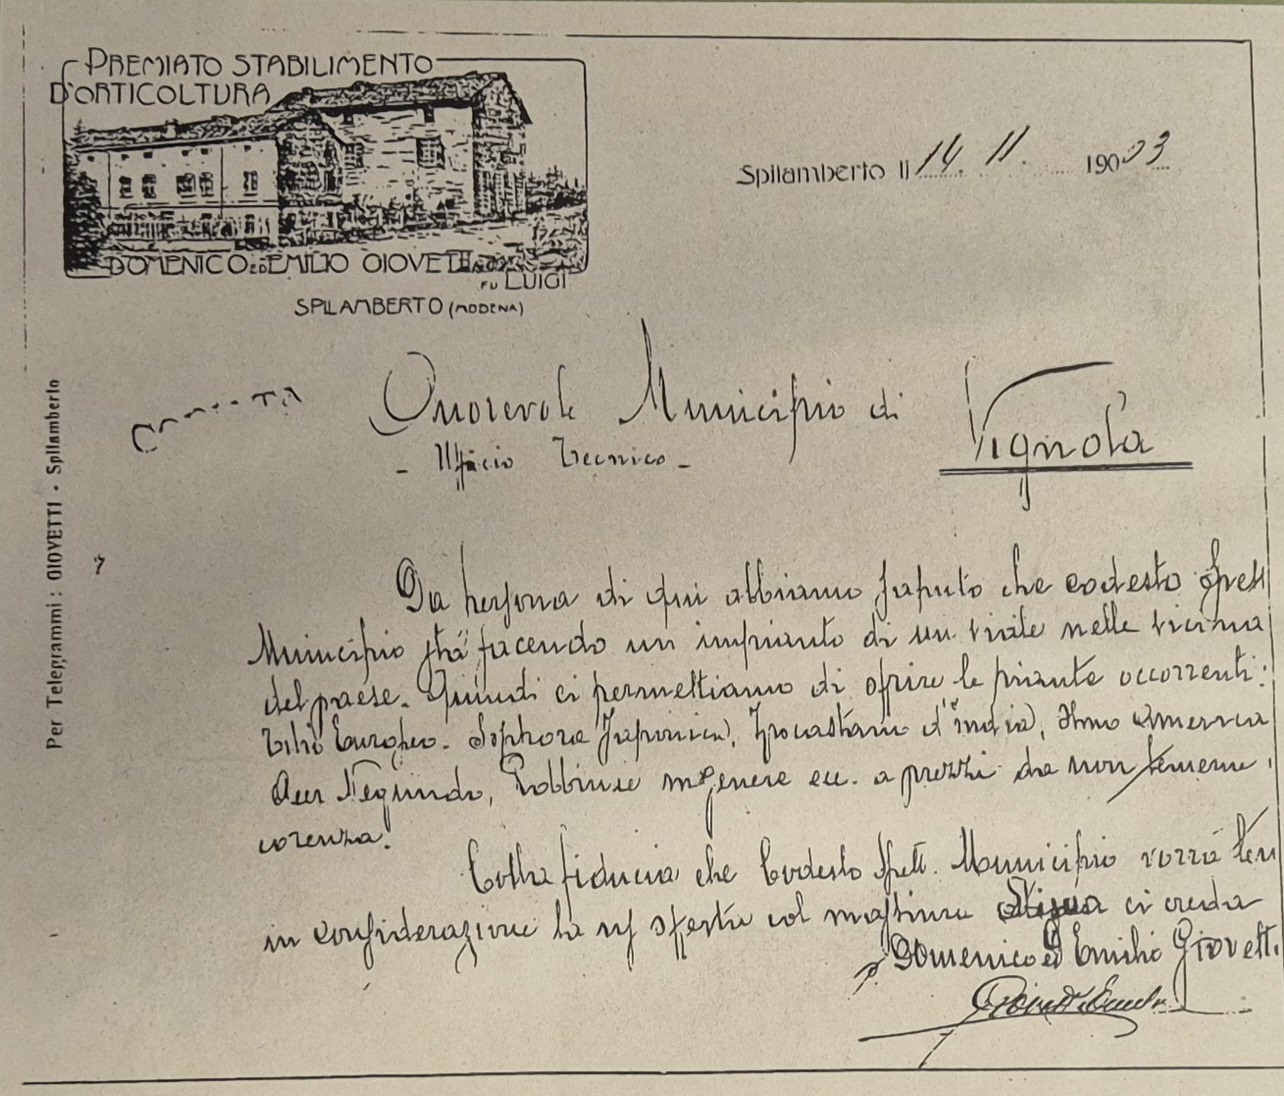 PREMIATO STABILIMENTO
D'ORTICOLTURA
DOMENICO ED EMILIO GIOVETTI
FU LUIGI
SPILAMBERTO (MODENA)
Spilamberto li 14. 11. 1903
Per Telegrammi: GIOVETTI - Spilamberto
Onorevole Municipio di Vignola
- Ufficio Tecnico -
Da persona di qui abbiamo saputo che codesto Spett
Municipio sta facendo un impianto di un viale nelle vicina
del paese. Quindi ci permettiamo di ofrire le piante occorrenti:
Tilio Europeo. Sophora Japonica, Ipocastani d'India, Olmo America
Acer Negundo, Robbinie in genere ecc. a prezzi da non temere
corenza.
Colla fiducia che Codesto Spett. Municipio vorrà ten
in considerazione la ns offerta col massima stima ci creda
p. Domenico ed Emilio Giovetti
Giovetti Emilio